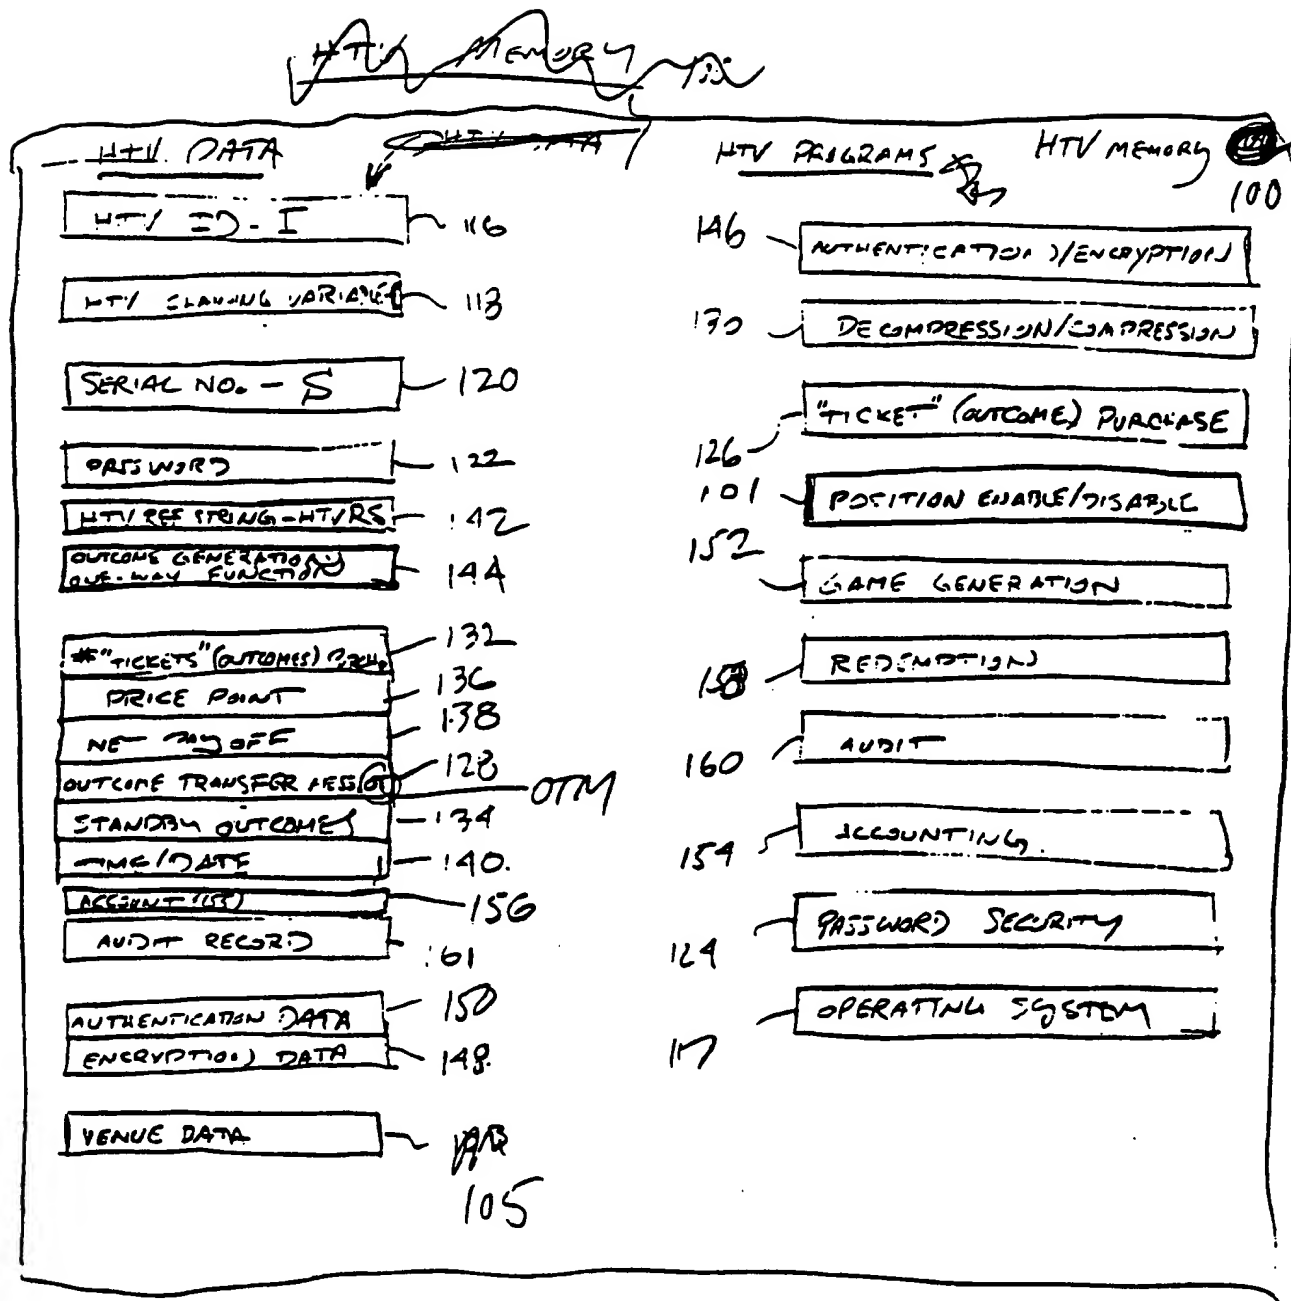 HTV MEMORY
HTV DATA
HTV DATA
HTV PROGRAMS
HTV MEMORY
100
HTV ID - I 116
HTV VARIABLE
SERIAL NO. - S 120
PASSWORD 122
HTV REF STRING - HTVRS 142
OUTCOME GENERATION
ONE-WAY FUNCTION 144
# "TICKETS" (OUTCOMES) 132
PRICE POINT 136
NET PAYOFF 138
OUTCOME TRANSFER MESS 128
OTM
STANDBY OUTCOMES 134
TIME/DATE 140
ACCOUNT 156
AUDIT RECORD 161
AUTHENTICATION DATA 150
ENCRYPTION DATA 148
VENUE DATA
105
146 AUTHENTICATION/ENCRYPTION
130 DECOMPRESSION/COMPRESSION
126 "TICKET" (OUTCOME) PURCHASE
101 POSITION ENABLE/DISABLE
152 GAME GENERATION
158 REDEMPTION
160 AUDIT
154 ACCOUNTING
124 PASSWORD SECURITY
117 OPERATING SYSTEM